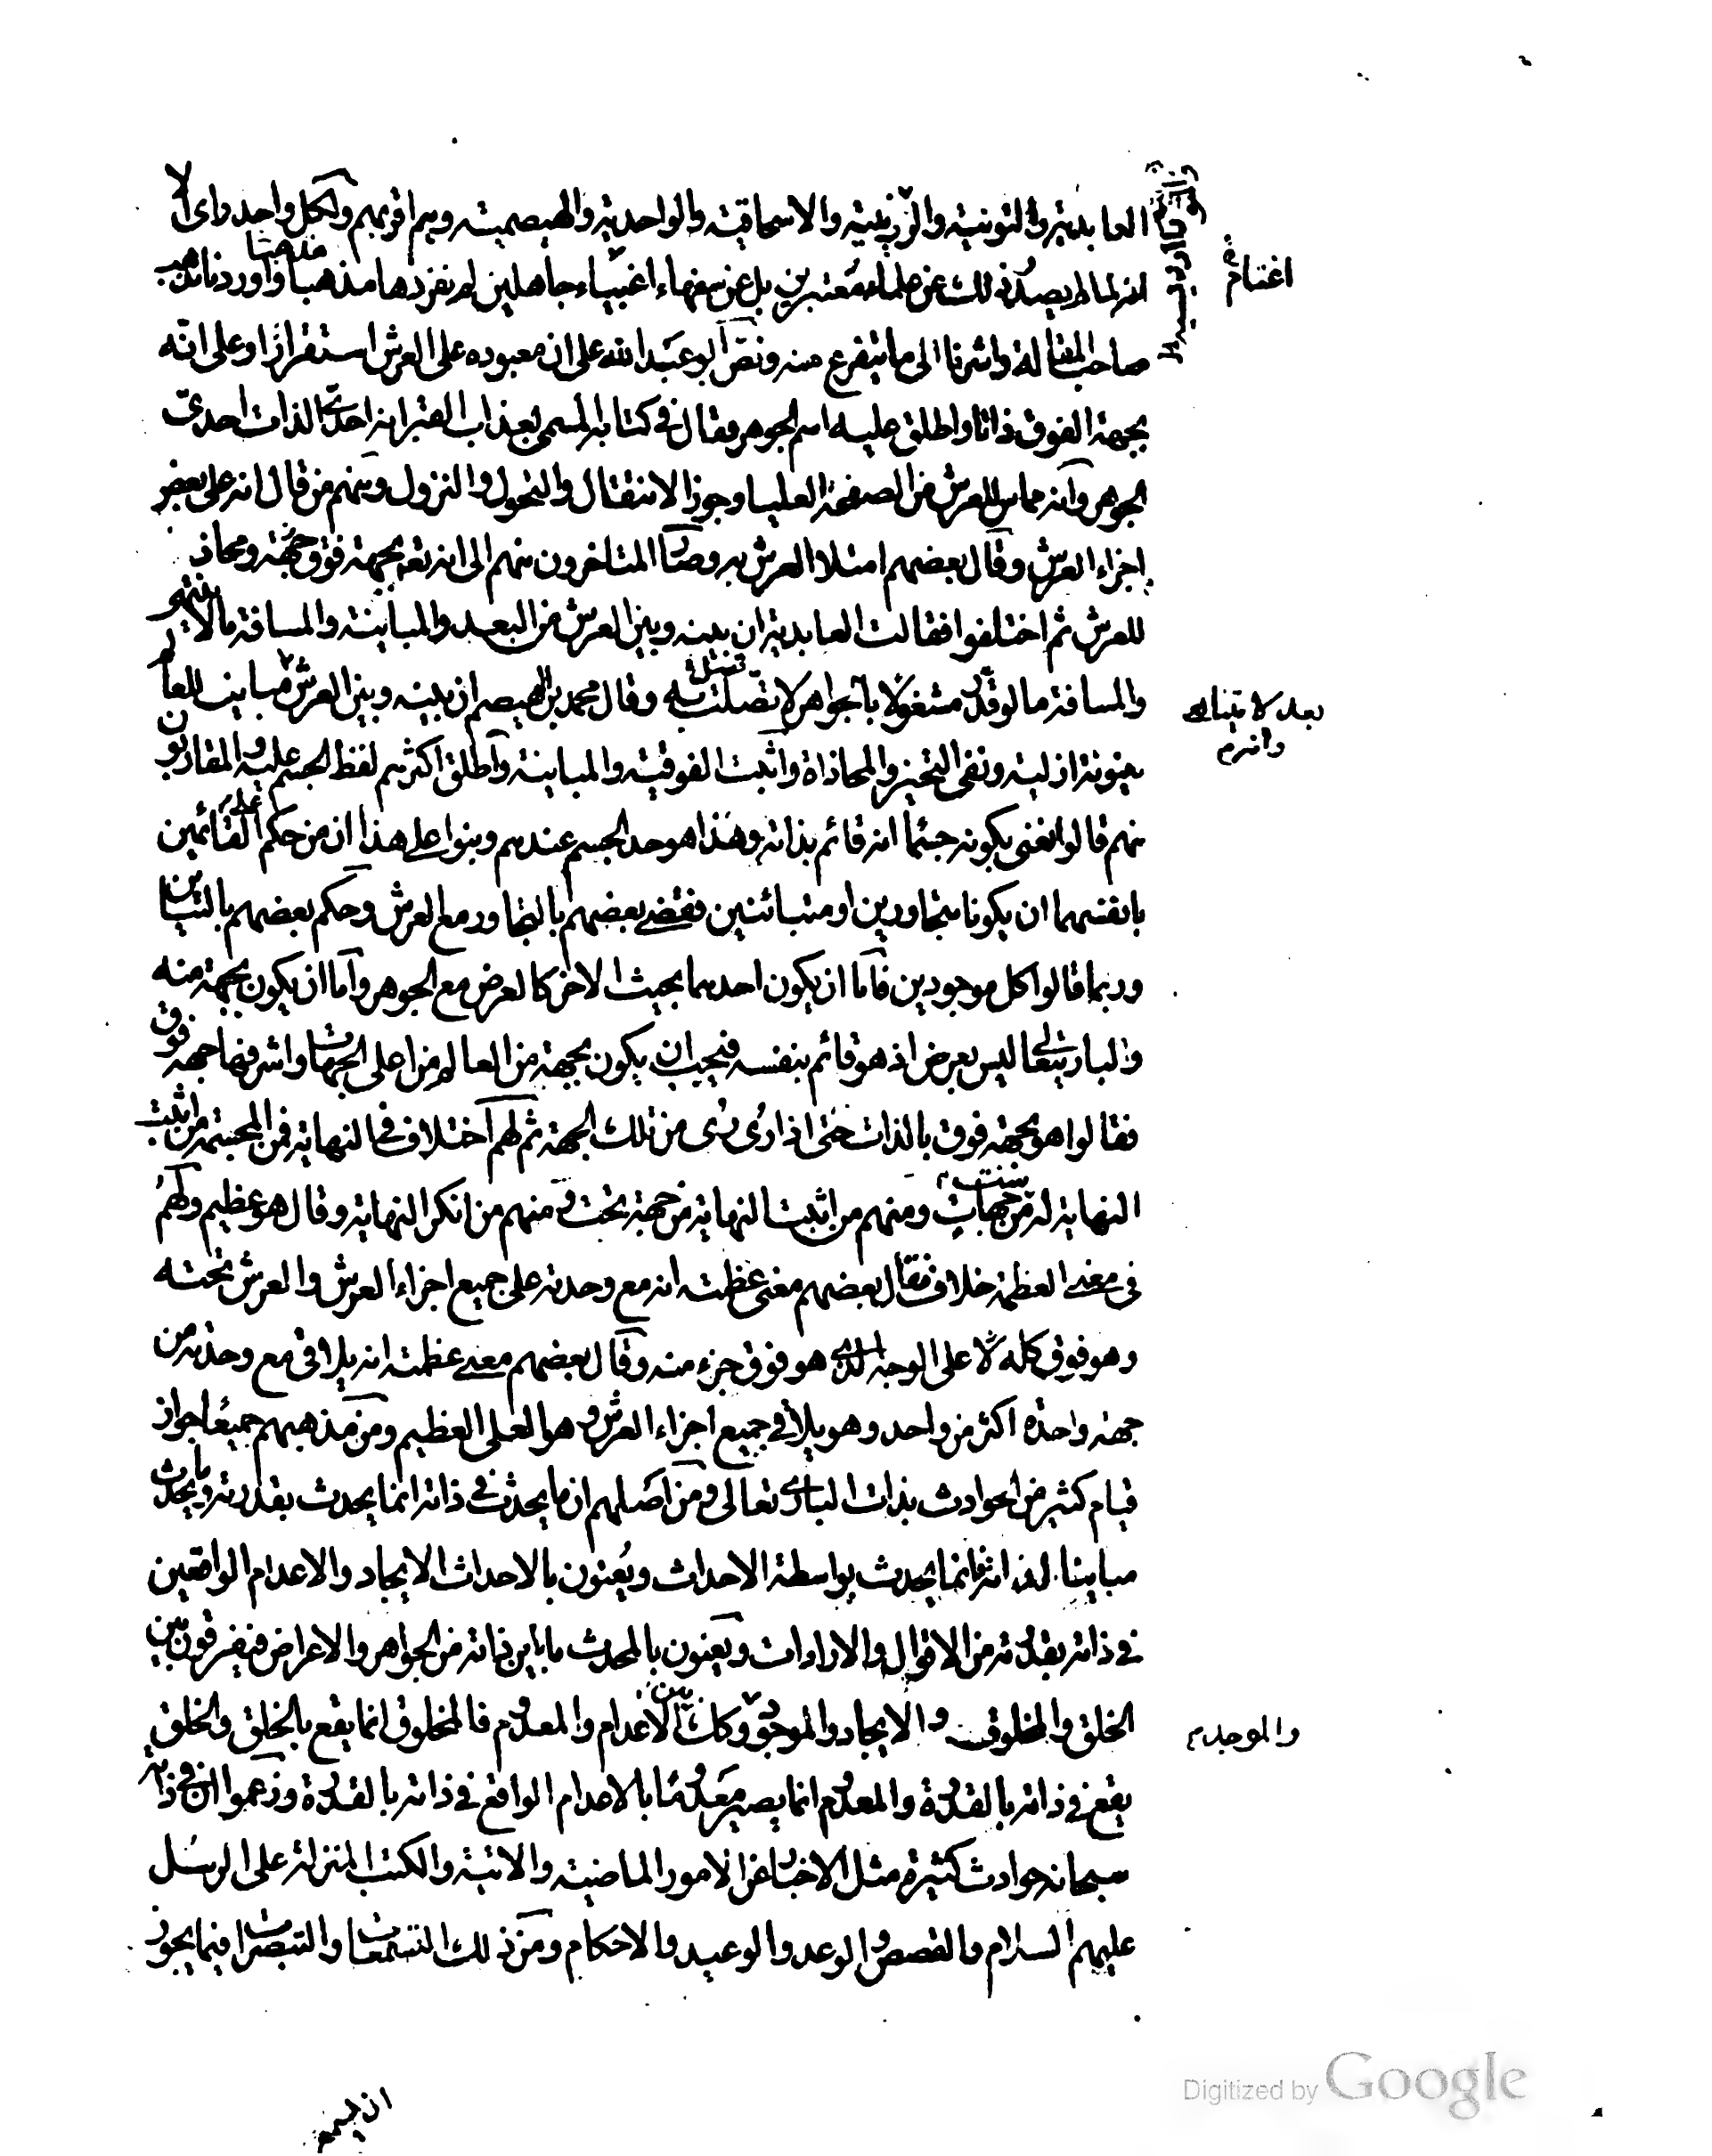 العابدية والتونية والزرينية والاسحاقية والواحدية والهيصمية وهم اقربهم ولكل واحد راى الا
انه لما لم يصدر ذلك عن علماء معتبرين بل عن سفهاء اغبياء جاهلين لم نفردها مذهبا واوردنا مذهب
صاحب المقالة واشرنا الى ما يتفرع منه ونص ابو عبد الله على ان معبوده على العرش استقرارا وعلى انه
بجهة الفوق ذاتا واطلق عليه اسم الجوهر فقال فى كتابه المسمى بعذاب القبر انه احدى الذات احدى
الجوهر وانه مماس للعرش من الصفحة العليا وجوز الانتقال والتحول والنزول ومنهم من قال انه على بعض
اجزاء العرش وقال بعضهم امتلا العرش به وصار المتاخرون منهم الى انه تع بجهة فوق ومحاذ
للعرش ثم اختلفوا فقالت العابدية ان بينه وبين العرش من البعد والمباينة والمسافة ما لا ينتهى
والمسافة ما لو قدر مشغولا بالجواهر لاتصلت به وقال محمد بن الهيصم ان بينه وبين العرش مباين للعالم
بينونة ازلية ونفى التحيز والمحاذاة واثبت الفوقية والمباينة واطلق اكثرهم لفظ الجسم عليه والمقاربون
منهم قالوا نعنى بكونه جسما انه قائم بذاته وهذا هو حد الجسم عندهم وبنوا على هذا ان من حكم القائمين
بانفسهما ان يكونا متجاورين او متباينين فقضى بعضهم بالتجاور مع العرش وحكم بعضهم بالتباين
وربما قالوا كل موجودين فاما ان يكون احدهما بحيث الاخر كالعرض مع الجوهر واما ان يكون بجهة منه
والبارى تعالى ليس بعرض اذ هو قائم بنفسه فيجب ان يكون بجهة من العالم من اعلى الجهات واشرفها جهة فوق
فقالوا هو بجهة فوق بالذات حتى اذا رئى رئى من تلك الجهة ثم لهم اختلاف فى النهاية فمن المجسمة من اثبت
النهاية له من ست جهات ومنهم من اثبت النهاية من جهة تحت ومنهم من انكر النهاية وقال هو عظيم ولهم
فى معنى العظمة خلاف فقال بعضهم معنى عظمته انه مع وحدته على جميع اجزاء العرش والعرش تحته
وهو فوق كله على الوجه الذى هو فوق جزء منه وقال بعضهم معنى عظمته انه يلاقى مع وحدته من
جهة واحدة اكثر من واحد وهو يلاقى جميع اجزاء العرش وهو العلى العظيم ومن مذهبهم جميعا جواز
قيام كثير من الحوادث بذات البارى تعالى ومن اصلهم ان ما يحدث فى ذاته انما يحدث بقدرته وما يحدث
مباينا لذاته فانما يحدث بواسطة الاحداث ويعنون بالاحداث الايجاد والاعدام الواقعين
فى ذاته بقدرته من الاقوال والارادات ويعنون بالمحدث ما باين ذاته من الجواهر والاعراض فيفرقون بين
الخلق والمخلوق والايجاد والموجود وكذلك بين الاعدام والمعدوم فالمخلوق انما يقع بالخلق والخلق
يقع فى ذاته بالقدرة والمعدوم انما يصير معدوما بالاعدام الواقع فى ذاته بالقدرة وزعموا ان فى ذاته
سبحانه حوادث كثيرة مثل الاخبار عن الامور الماضية والاتية والكتب المنزلة على الرسل
عليهم السلام والقصص والوعد والوعيد والاحكام ومن ذلك التسمعات والتبصرات فيما يجوز
اغتام
بعد لا يتناهى وانه م
والموجد م
ان يسمع
Digitized by Google